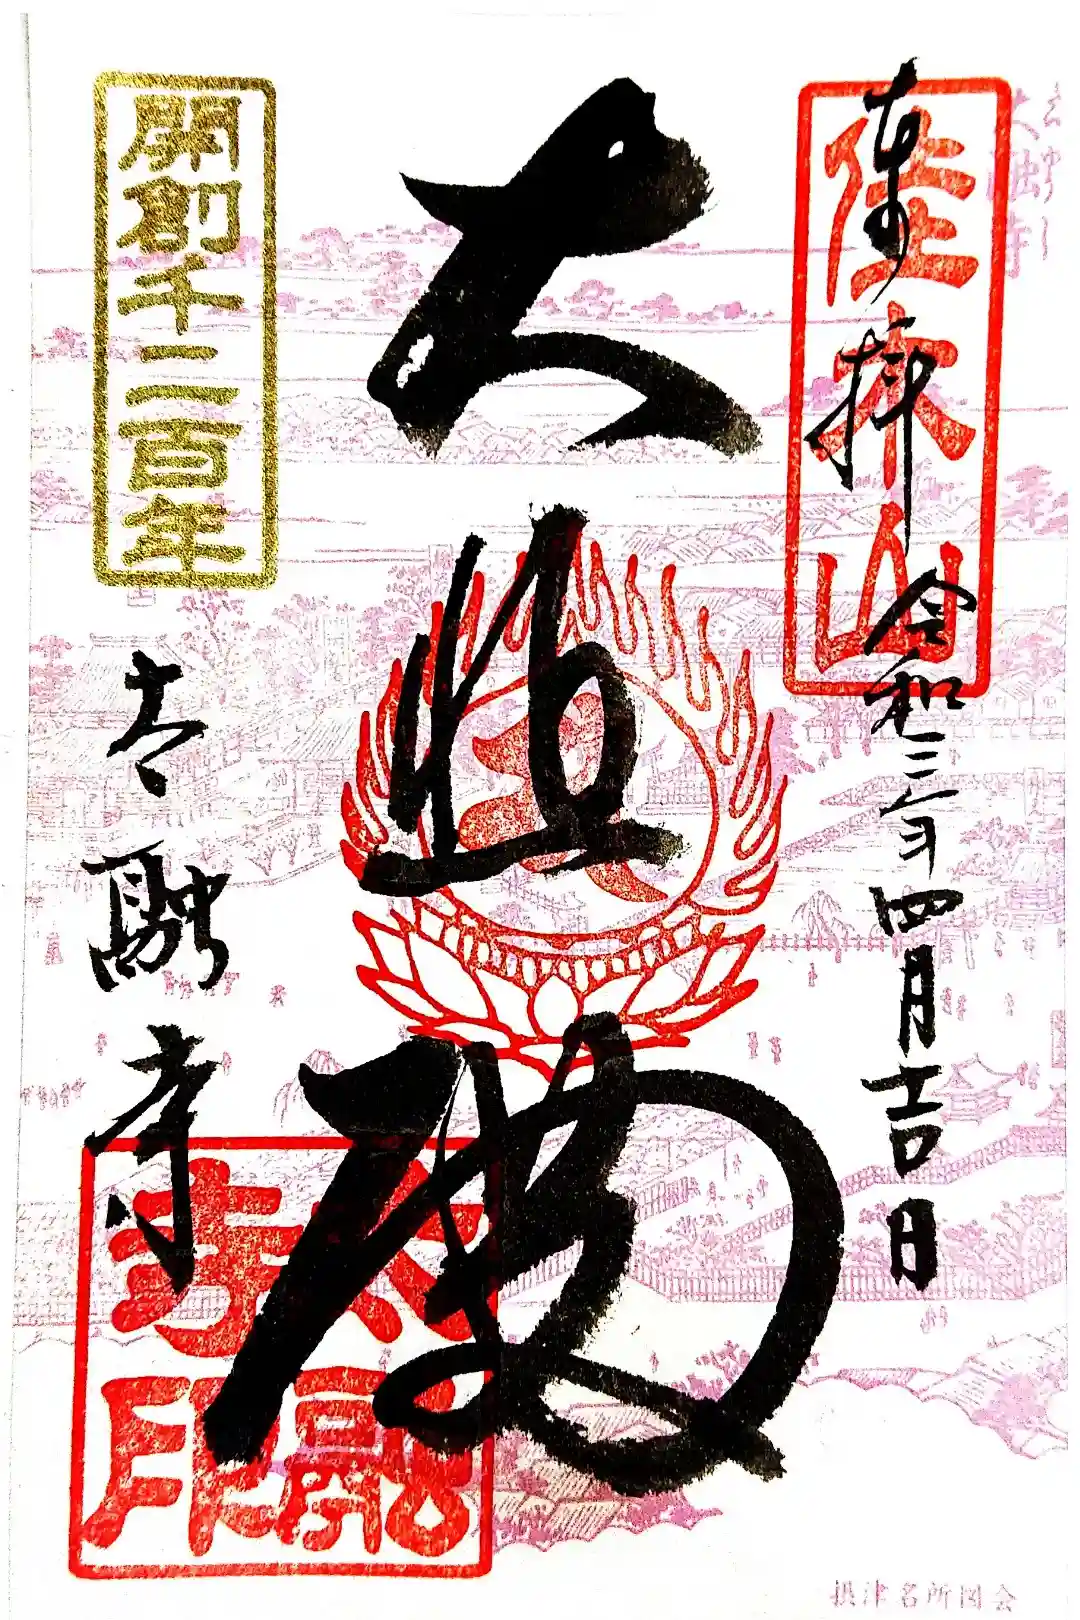 佳木山
奉拝 令和三年四月吉日
大悲殿
開創千二百年
太融寺
太融
寺印
太融寺
摂津名所図会